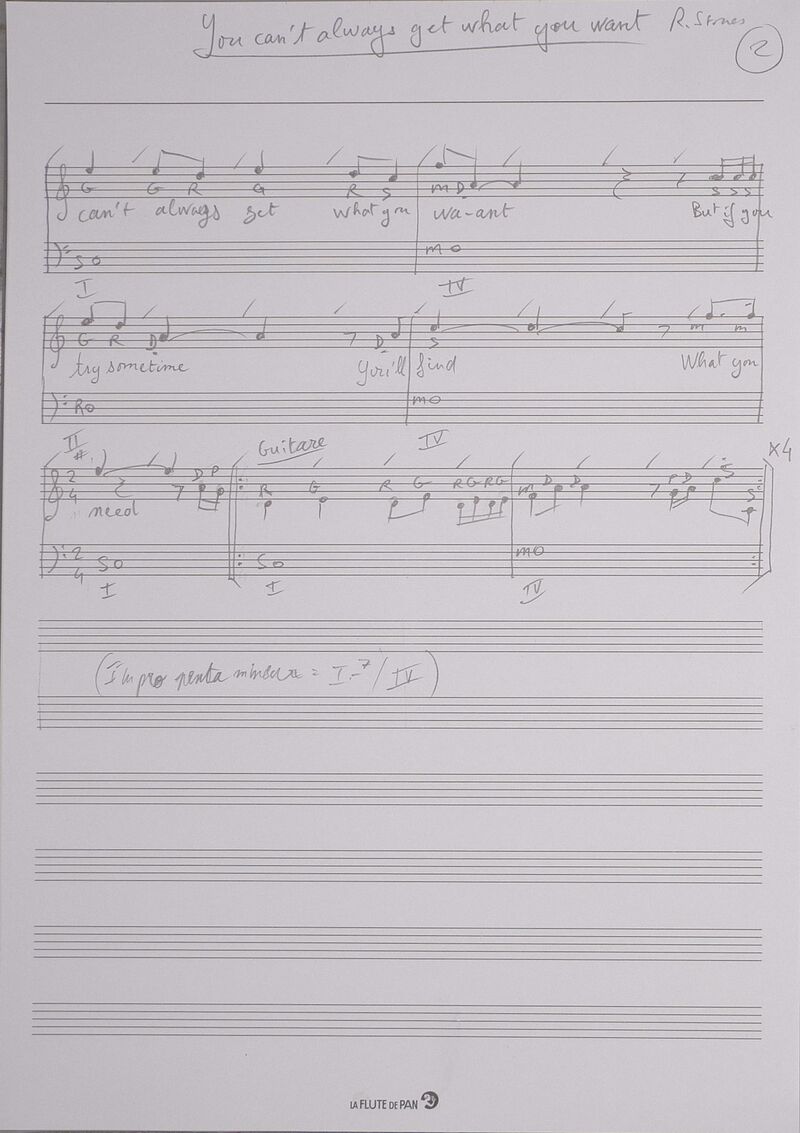 You can't always get what you want R. Stones
2
G G R G R S m D S S S
can't always get what you wa-ant But if you
S m
I IV
G R D D S m m
try sometime You'll find What you
R m
II Guitare IV x4
2 4 D P R G R G R G R G m D D P D S S
need
2 4 S S m
I I IV
(Impro penta mineure = I-7 / IV)
LA FLUTE DE PAN